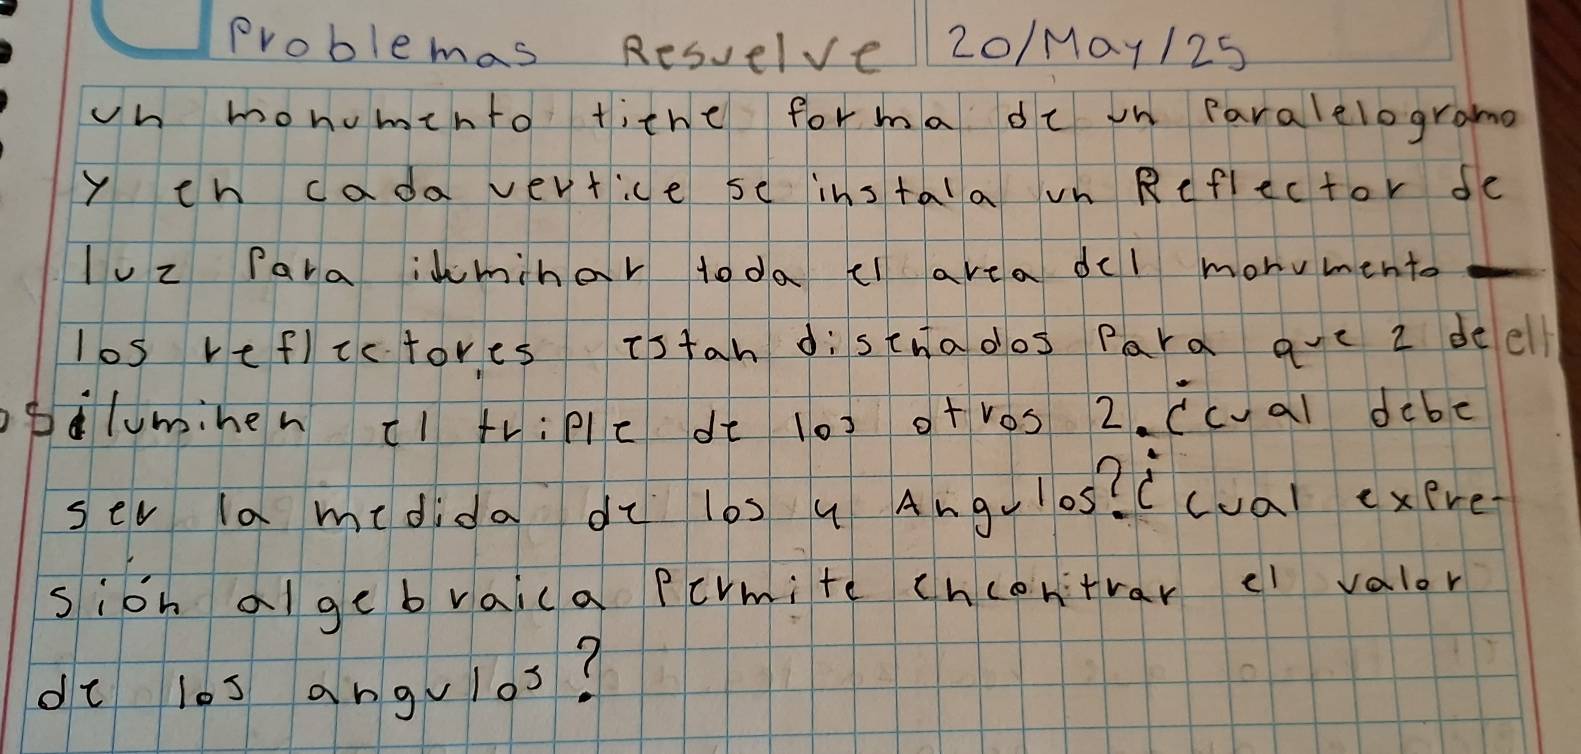 Problemas Resuelve 20/May/25
un monumento tiene forma de un paralelogramo
y en cada vertice se instala un Reflector de
luz Para iluminar toda el area del monumento
los reflectores estan diseñados Para que 2 de ell
os iluminen el triple de los otros 2. ¿cual debe
ser la medida de los 4 Angulos? ¿cual expre-
sión algebraica Permite encontrar el valor
de los angulos?